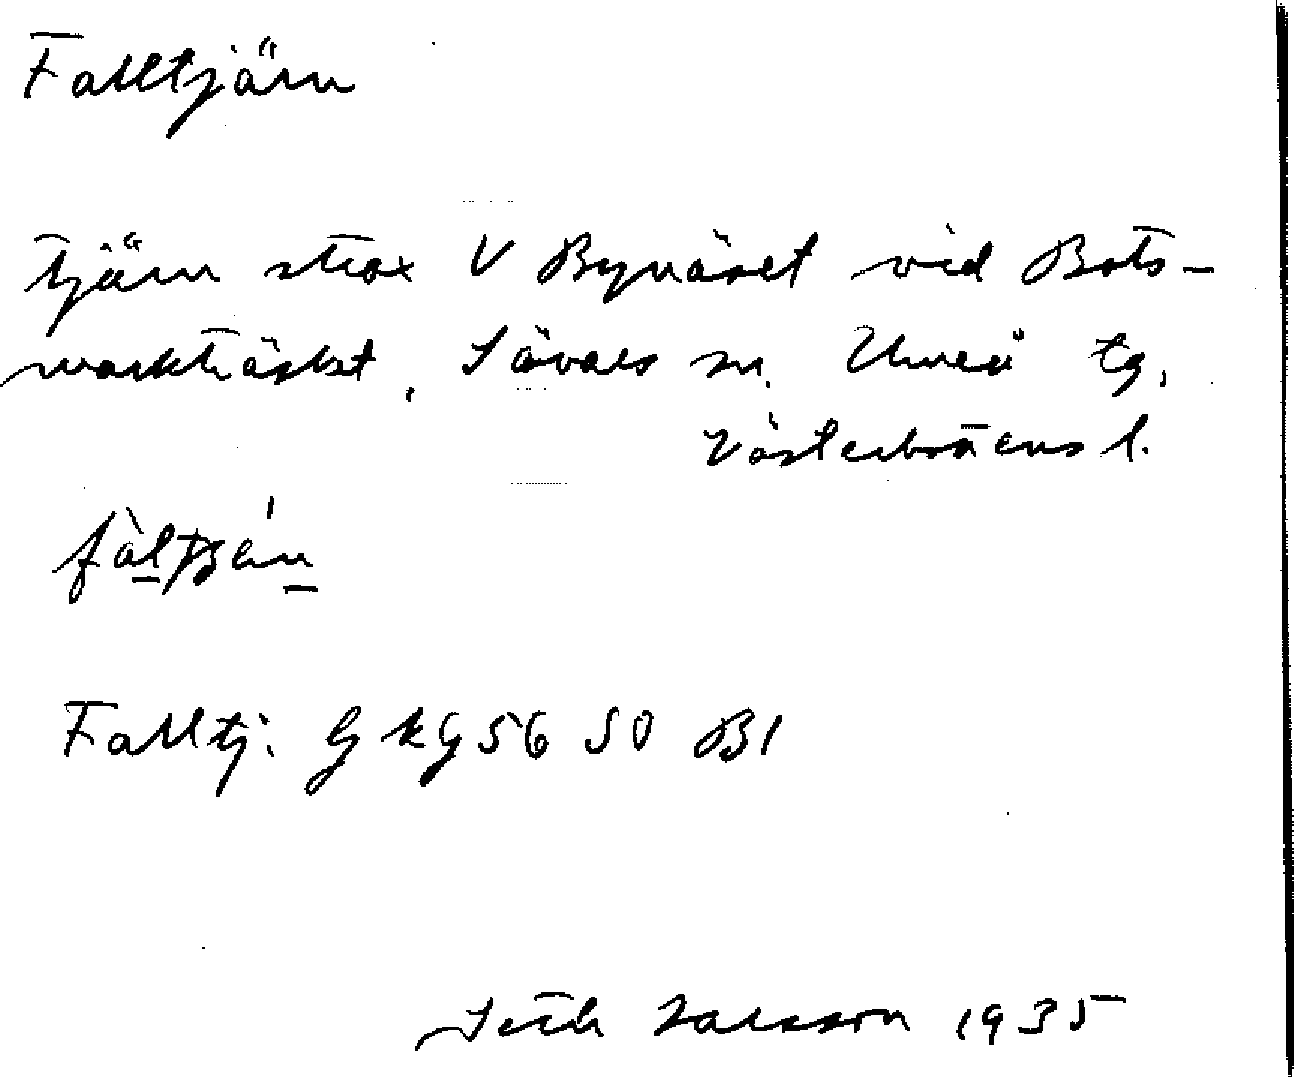 Falltjärn
Tjärn strax V Bynäset vid Bots-
marksträsket, Sävars sn. Umeå tg.
Västerbottens l.
Falltj: GKG 56 50 B1
Seth Larsson 1935